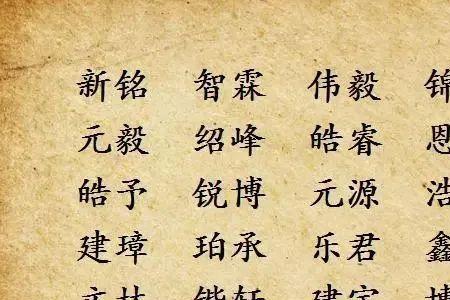 新铭 智霖 伟毅 锦
元毅 绍峰 皓睿 恩
皓予 锐博 元源 浩
建璋 珀承 乐君 鑫